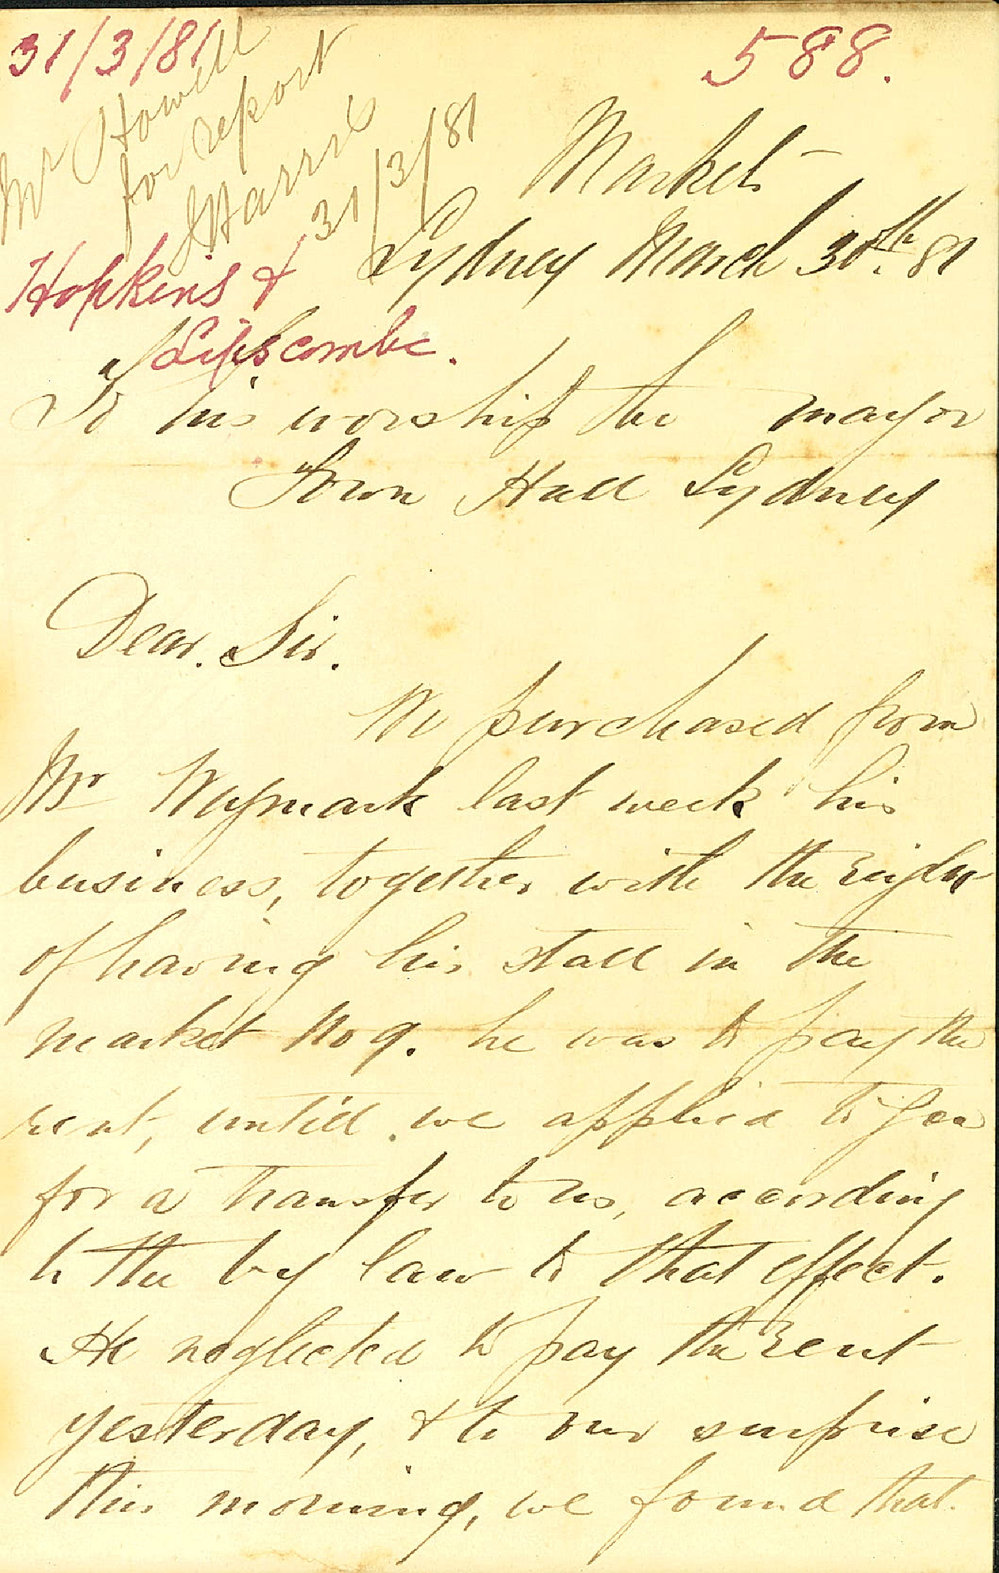 31/3/81
588.
Mr Howell
for report
JHarris
31/3/81
Market
Sydney March 30th. 81
Hopkins &
Lipscombe.
To his worship the mayor
Town Hall Sydney
Dear. Sir.
We purchased from
Mr Waymark last week his
business, together with the right
of having his stall in the
market No 9. he was to pay the
rent, untill we applied to you
for a transfer to us, according
to the by law to that effect.
He neglected to pay the rent
yesterday, & to our surprise
this morning, we found that